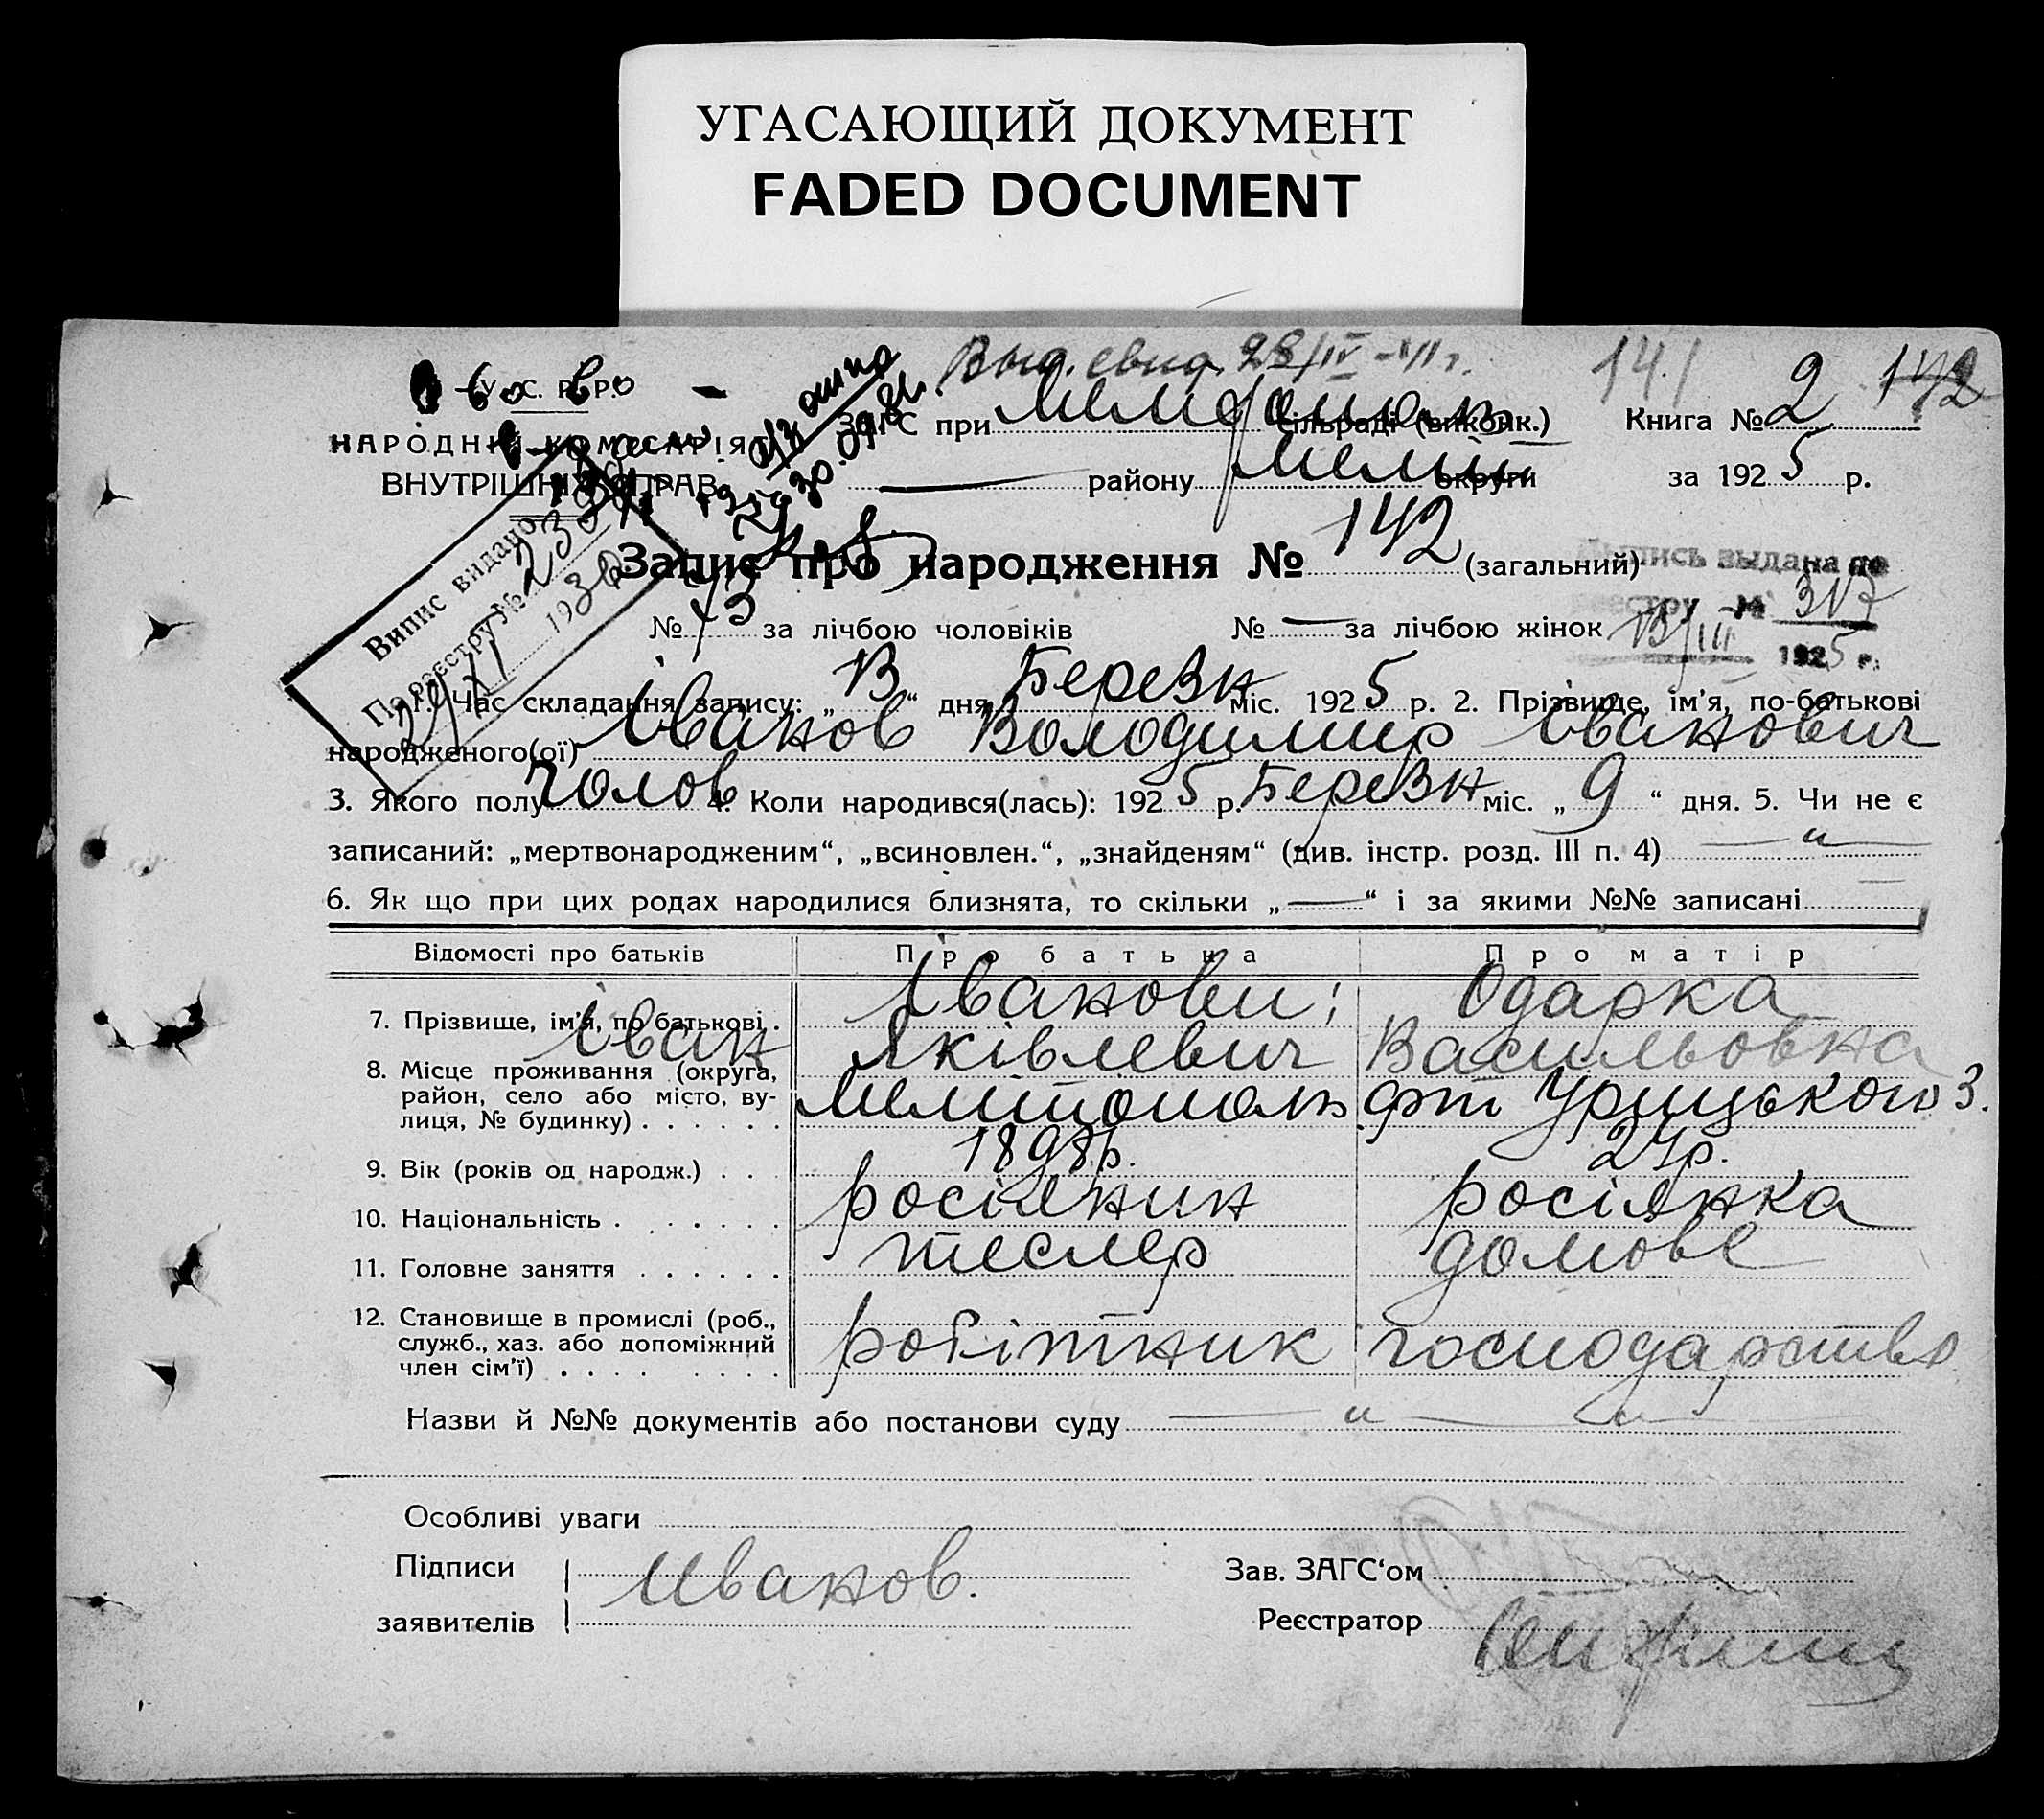 УГАСАЮЩИЙ ДОКУМЕНТ
FADED DOCUMENT
Выд. свид. 28/IV
141
142
У. С. Р. Р.
ЗАГС при сільраді (виконк.) Книга № 2
НАРОДНІЙ КОМІСАРІЯТ
ВНУТРІШНІХ СПРАВ
— району Меліт округи за 1925 р.
Випис видано
По реєстру № 230
29/XI 1936
Запис про народження № 142 (загальний)
Выпись выдана по
реестру № 317
13/III 1925 г.
№ 73 за лічбою чоловіків № — за лічбою жінок
1. Час складання запису: „13“ дня Березн міс. 1925 р. 2. Прізвище, ім’я, по-батькові
народженого(ої) Іванов Володимир Іванович
3. Якого полу чолов 4. Коли народився(лась): 1925 р. Березн міс. „9“ дня. 5. Чи не є
записаний: „мертвонародженим“, „всиновлен.“, „знайденям“ (див. інстр. розд. III п. 4) — „ —
6. Як що при цих родах народилися близнята, то скільки „—“ і за якими №№ записані —
Відомості про батьків Про батька Про матір
7. Прізвище, ім’я, по батькові. Іванови; Одарка
Іван Яківлевич Васильовна
8. Місце проживання (округа,
район, село або місто, ву-
лиця, № будинку) . . . . . . Мелітополь Урицького 3.
9. Вік (років од народж.) . . . 1898р. 24р.
10. Національність . . . . . . . росіянин росіянка
11. Головне заняття . . . . . . тесляр домове
12. Становище в промислі (роб.,
служб., хаз. або допоміжний
член сім’ї) . . . . . . . . робітник господарство
Назви й №№ документів або постанови суду — „ — „ —
Особливі уваги
Підписи
заявителів
Иванов.
Зав. ЗАГС‘ом
Реєстратор